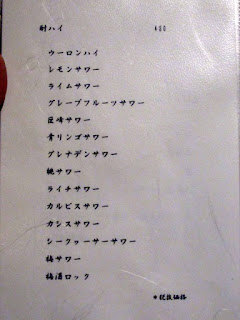 酎ハイ 400
ウーロンハイ
レモンサワー
ライムサワー
グレープフルーツサワー
巨峰サワー
青リンゴサワー
グレナデンサワー
桃サワー
ライチサワー
カルピスサワー
カシスサワー
シークヮーサーサワー
梅サワー
梅酒ロック
*税抜価格